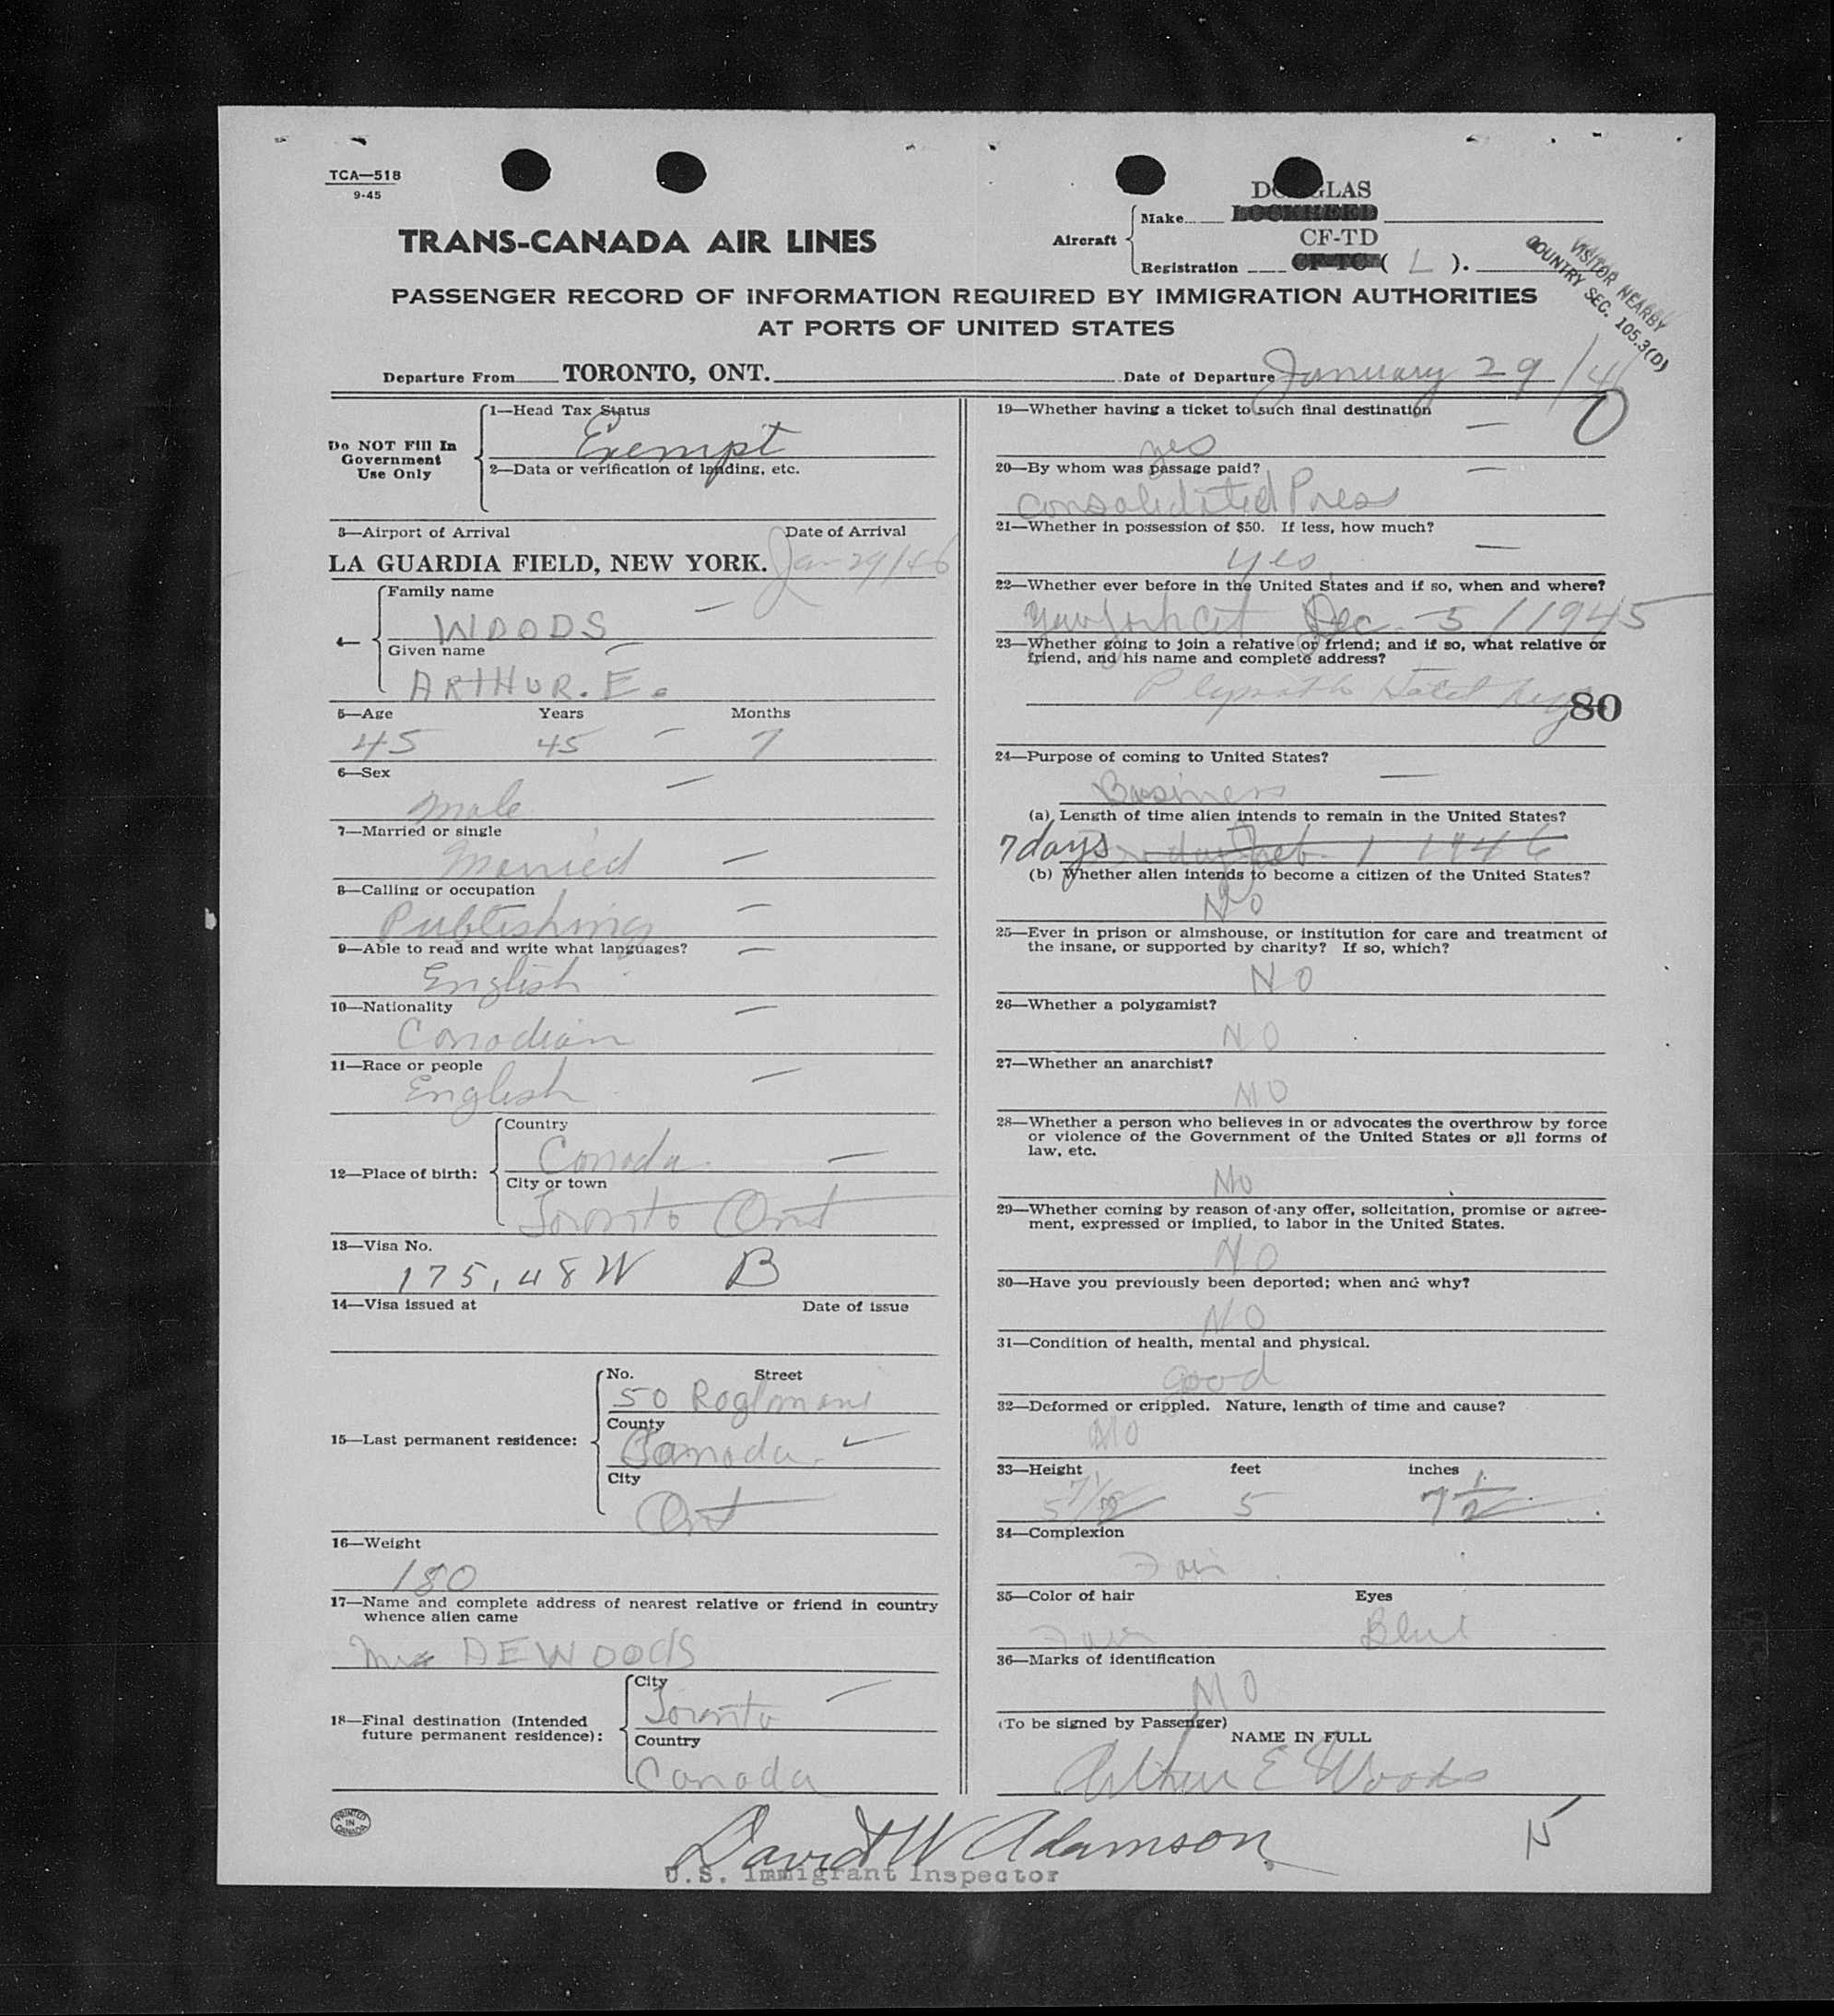 TCA—518
9-45
TRANS-CANADA AIR LINES
Aircraft
Make
DOUGLAS
LOCKHEED
CF-TD
Registration CF-TC ( L ).
VISITOR NEARBY
COUNTRY SEC. 105.3(D)
PASSENGER RECORD OF INFORMATION REQUIRED BY IMMIGRATION AUTHORITIES
AT PORTS OF UNITED STATES
Departure From TORONTO, ONT. Date of Departure January 29/46
Do NOT Fill In
Government
Use Only
1—Head Tax Status
Exempt
2—Data or verification of landing, etc.
3—Airport of Arrival Date of Arrival
LA GUARDIA FIELD, NEW YORK. Jan 29/46
4—
Family name
WOODS
Given name
ARTHUR. E.
5—Age Years Months
45 45 7
6—Sex
Male
7—Married or single
Married
8—Calling or occupation
Publishing
9—Able to read and write what languages?
English
10—Nationality
Canadian
11—Race or people
English
12—Place of birth:
Country
Canada
City or town
Toronto Ont
13—Visa No.
175,48W B
14—Visa issued at Date of issue
15—Last permanent residence:
No. Street
50
County
Canada
City
Ont
16—Weight
180
17—Name and complete address of nearest relative or friend in country
whence alien came
Mrs AEWOODS
18—Final destination (Intended
future permanent residence):
City
Toronto
Country
Canada
19—Whether having a ticket to such final destination
yes
20—By whom was passage paid?
Consolidated Press
21—Whether in possession of $50. If less, how much?
yes
22—Whether ever before in the United States and if so, when and where?
New York Cit Dec. 5 / 1945
23—Whether going to join a relative or friend; and if so, what relative or
friend, and his name and complete address?
Plymouth Hotel
80
24—Purpose of coming to United States?
Business
(a) Length of time alien intends to remain in the United States?
7days Feb. 1 1946
(b) Whether alien intends to become a citizen of the United States?
No
25—Ever in prison or almshouse, or institution for care and treatment of
the insane, or supported by charity? If so, which?
NO
26—Whether a polygamist?
NO
27—Whether an anarchist?
NO
28—Whether a person who believes in or advocates the overthrow by force
or violence of the Government of the United States or all forms of
law, etc.
No
29—Whether coming by reason of any offer, solicitation, promise or agree-
ment, expressed or implied, to labor in the United States.
NO
30—Have you previously been deported; when and why?
NO
31—Condition of health, mental and physical.
good
32—Deformed or crippled. Nature, length of time and cause?
NO
33—Height feet inches
5 7 1/2 5 7 1/2
34—Complexion
Fair
35—Color of hair Eyes
Fair Blue
36—Marks of identification
NO
(To be signed by Passenger)
NAME IN FULL
Arthur E Woods
PRINTED
IN
CANADA
David W Adamson
U.S. Immigrant Inspector